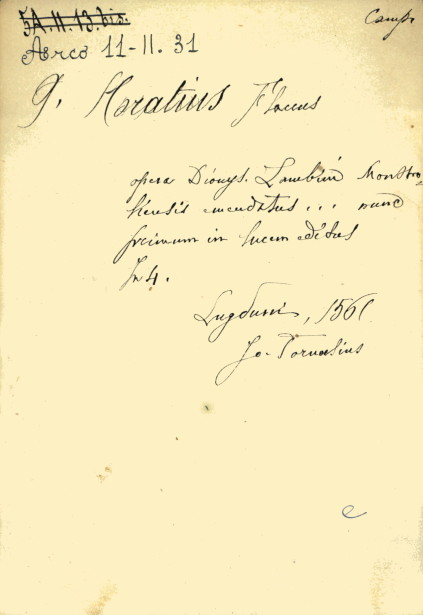 5A.11.13.bis.
Camp.
Arco 11-11.31
Q. Horatius Flaccus
opera Dionys. Lambini Monstro-
liensis emendatus... nunc
primum in lucem editus
In 4.
Lugduni, 1561
Jo. Tornaesius
e